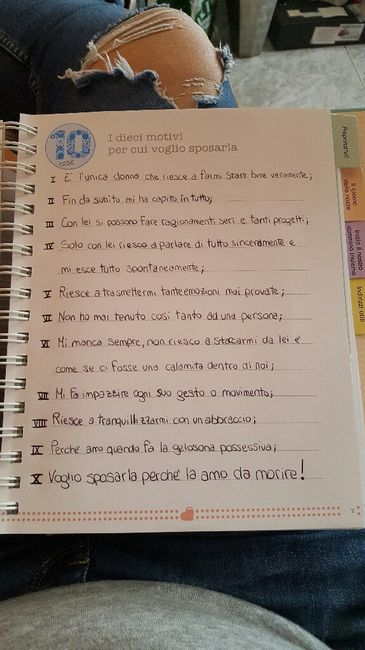 10
cose
I dieci motivi
per cui voglio sposarla
I E' l'unica donna che riesce a farmi stare bene veramente;
II Fin da subito mi ha capito in tutto;
III Con lei si possono fare ragionamenti seri e tanti progetti;
IV Solo con lei riesco a parlare di tutto sinceramente e
mi esce tutto spontaneamente;
V Riesce a trasmettermi tante emozioni mai provate;
VI Non ho mai tenuto così tanto ad una persona;
VII Mi manca sempre, non riesco a staccarmi da lei e'
come se ci fosse una calamita dentro di noi;
VIII Mi fa impazzire ogni suo gesto o movimento;
VIII Riesce a tranquillizzarmi con un abbraccio;
IX Perchè amo quando fa la gelosona possessiva;
X Voglio sposarla perchè la amo da morire!
7
Preparativi
Il Giorno
delle nozze
Inizia il nostro
cammino insieme
Indirizzi utili